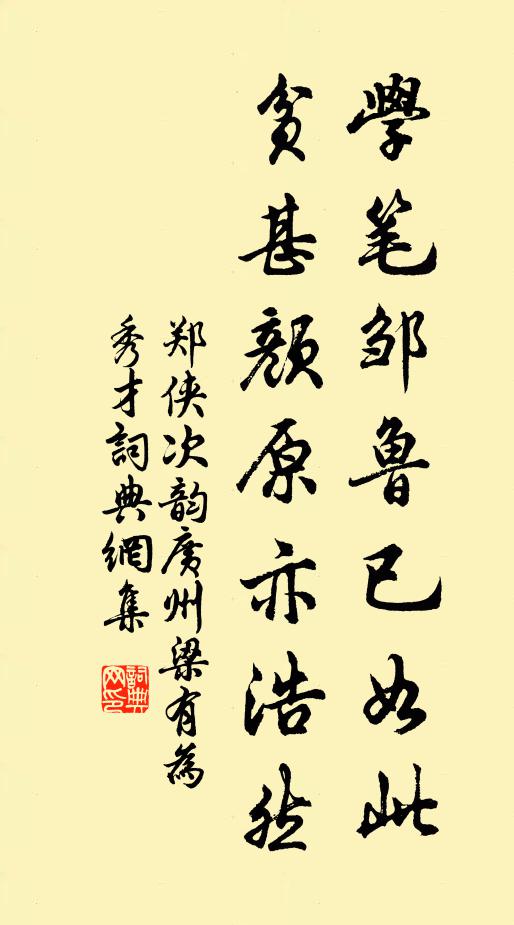 學笔邹鲁已如此
貧甚顏原亦浩然
郑侠次韵廣州梁有為
秀才詞典網集
詞典
网印